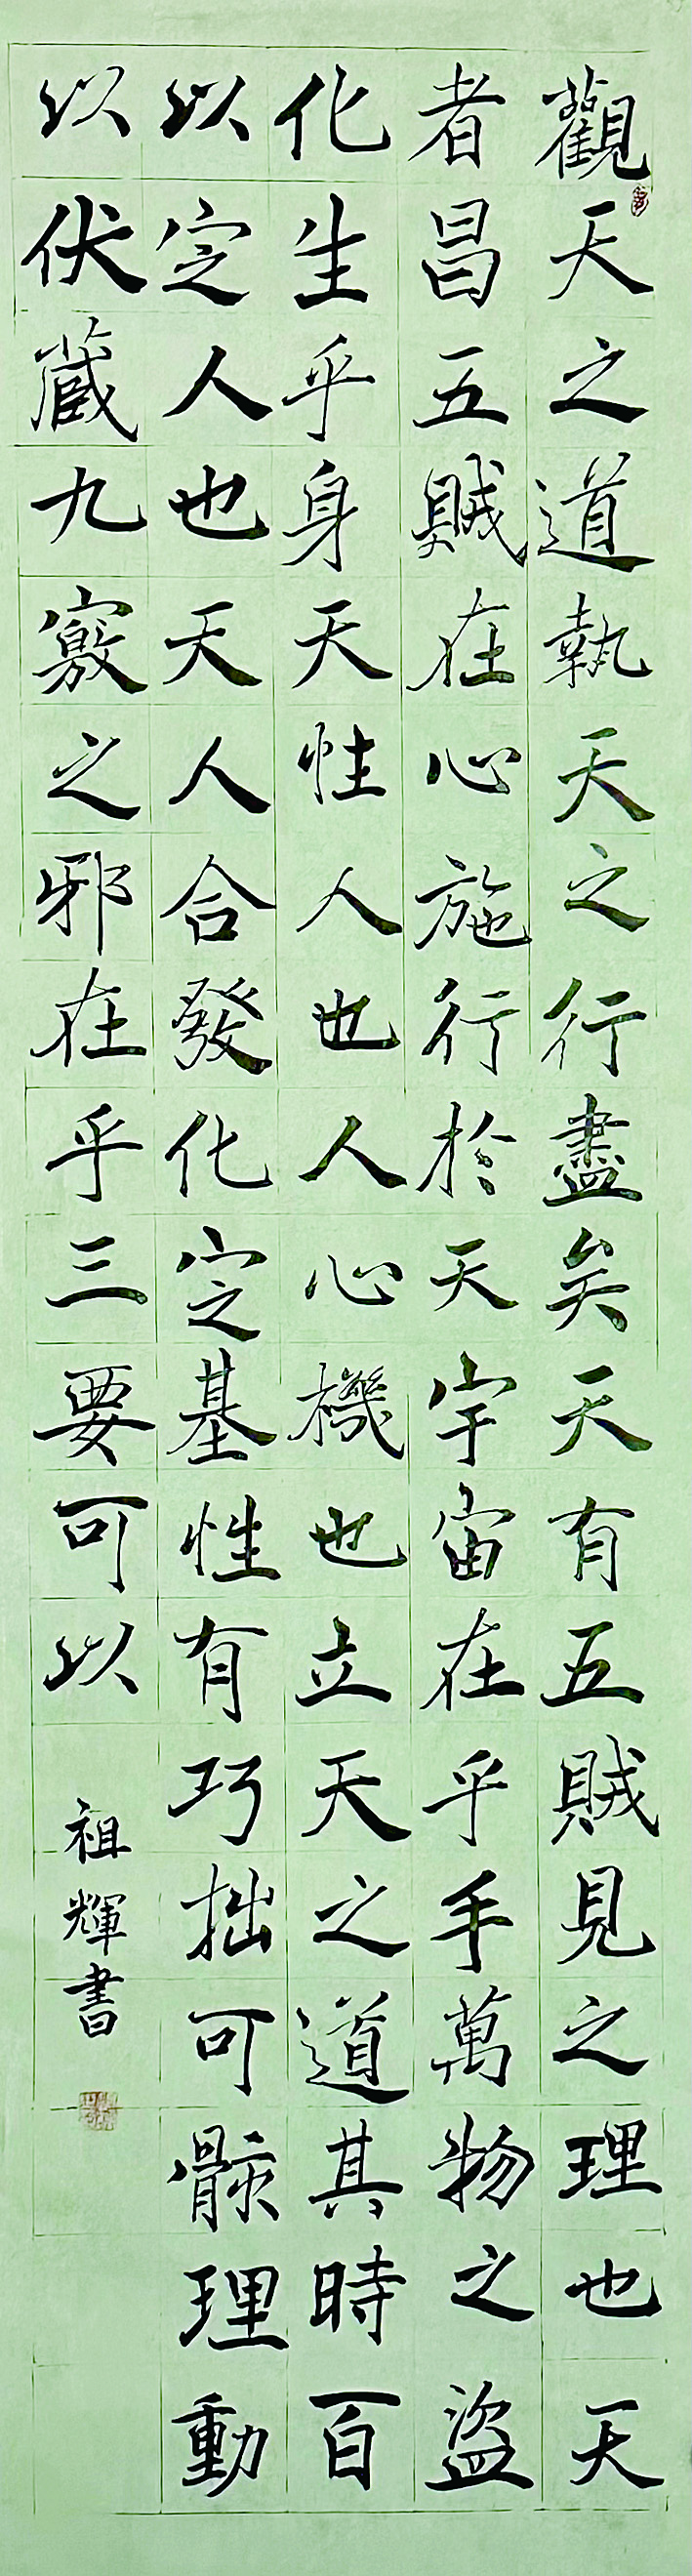 觀天之道執天之行盡矣天有五賊見之理也天
者昌五賊在心施行於天宇宙在乎手萬物之盜
化生乎身天性人也人心機也立天之道其時百
以定人也天人合發化定基性有巧拙可骸理動
以伏藏九竅之邪在乎三要可以
祖輝書